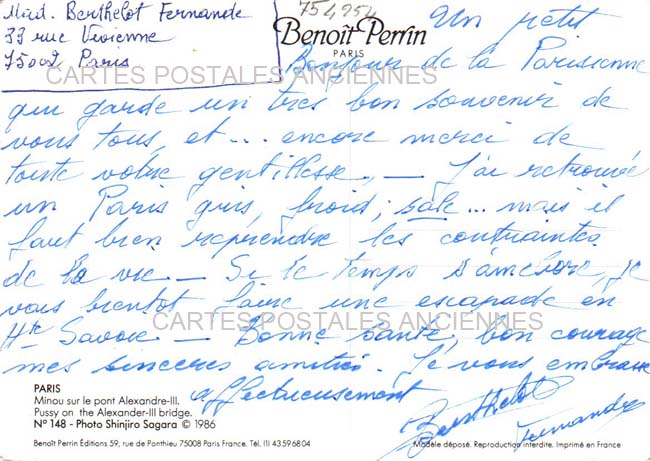 Mad. Berthelot Fernande
33 rue Vivienne
75002 Paris
754954
Benoît Perrin
PARIS
Un petit
Bonjour de la Parisienne
CARTES POSTALES ANCIENNES
qui garde un très bon souvenir de
vous tous, et... encore merci de
toute votre gentillesse, — J'ai retrouvé
un Paris gris, froid, sale... mais il
faut bien reprendre les contraintes
de la vie — Si le temps s'améliore, je
vais bientot faire une escapade en
Hte Savoie — Bonne santé, bon courage
CARTES POSTALES ANCIENNES
mes sincères amitiés. Je vous embrasse
affectueusement
Berthelot
Fernande
PARIS
Minou sur le pont Alexandre-III.
Pussy on the Alexander-III bridge.
N° 148 - Photo Shinjiro Sagara © 1986
Benoît Perrin Éditions 59, rue de Ponthieu 75008 Paris France. Tél. (1) 43 59 68 04
Modèle déposé. Reproduction interdite. Imprimé en France